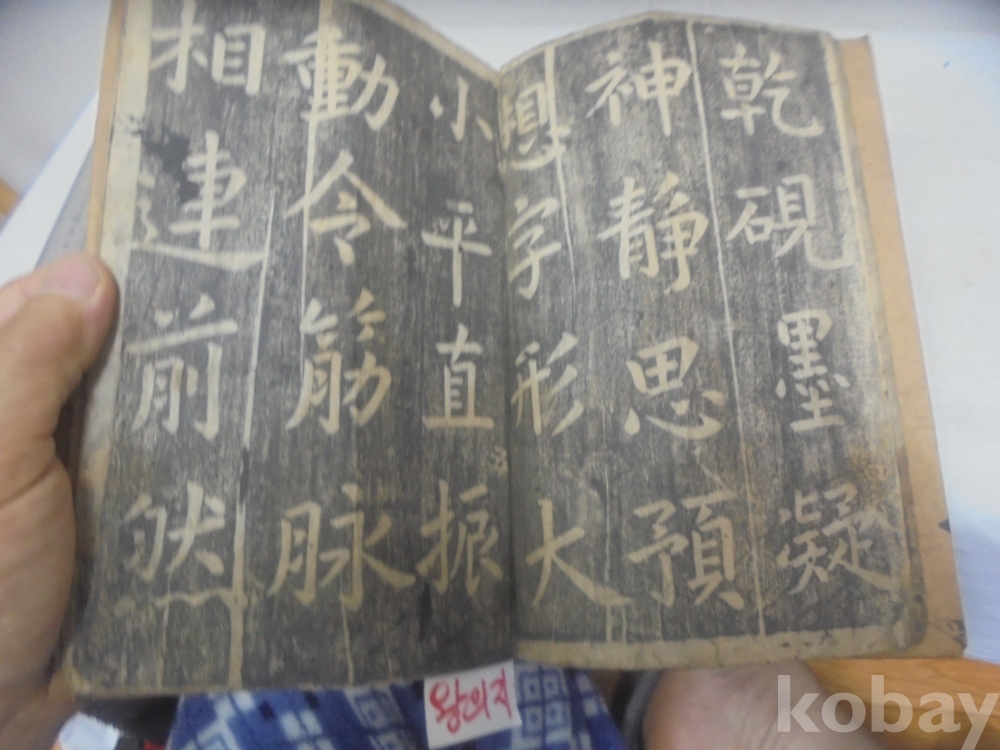 乾硯墨凝
神靜思預
想字形大
小平直振
動令筋脉
相連前然
왕희지
kobay